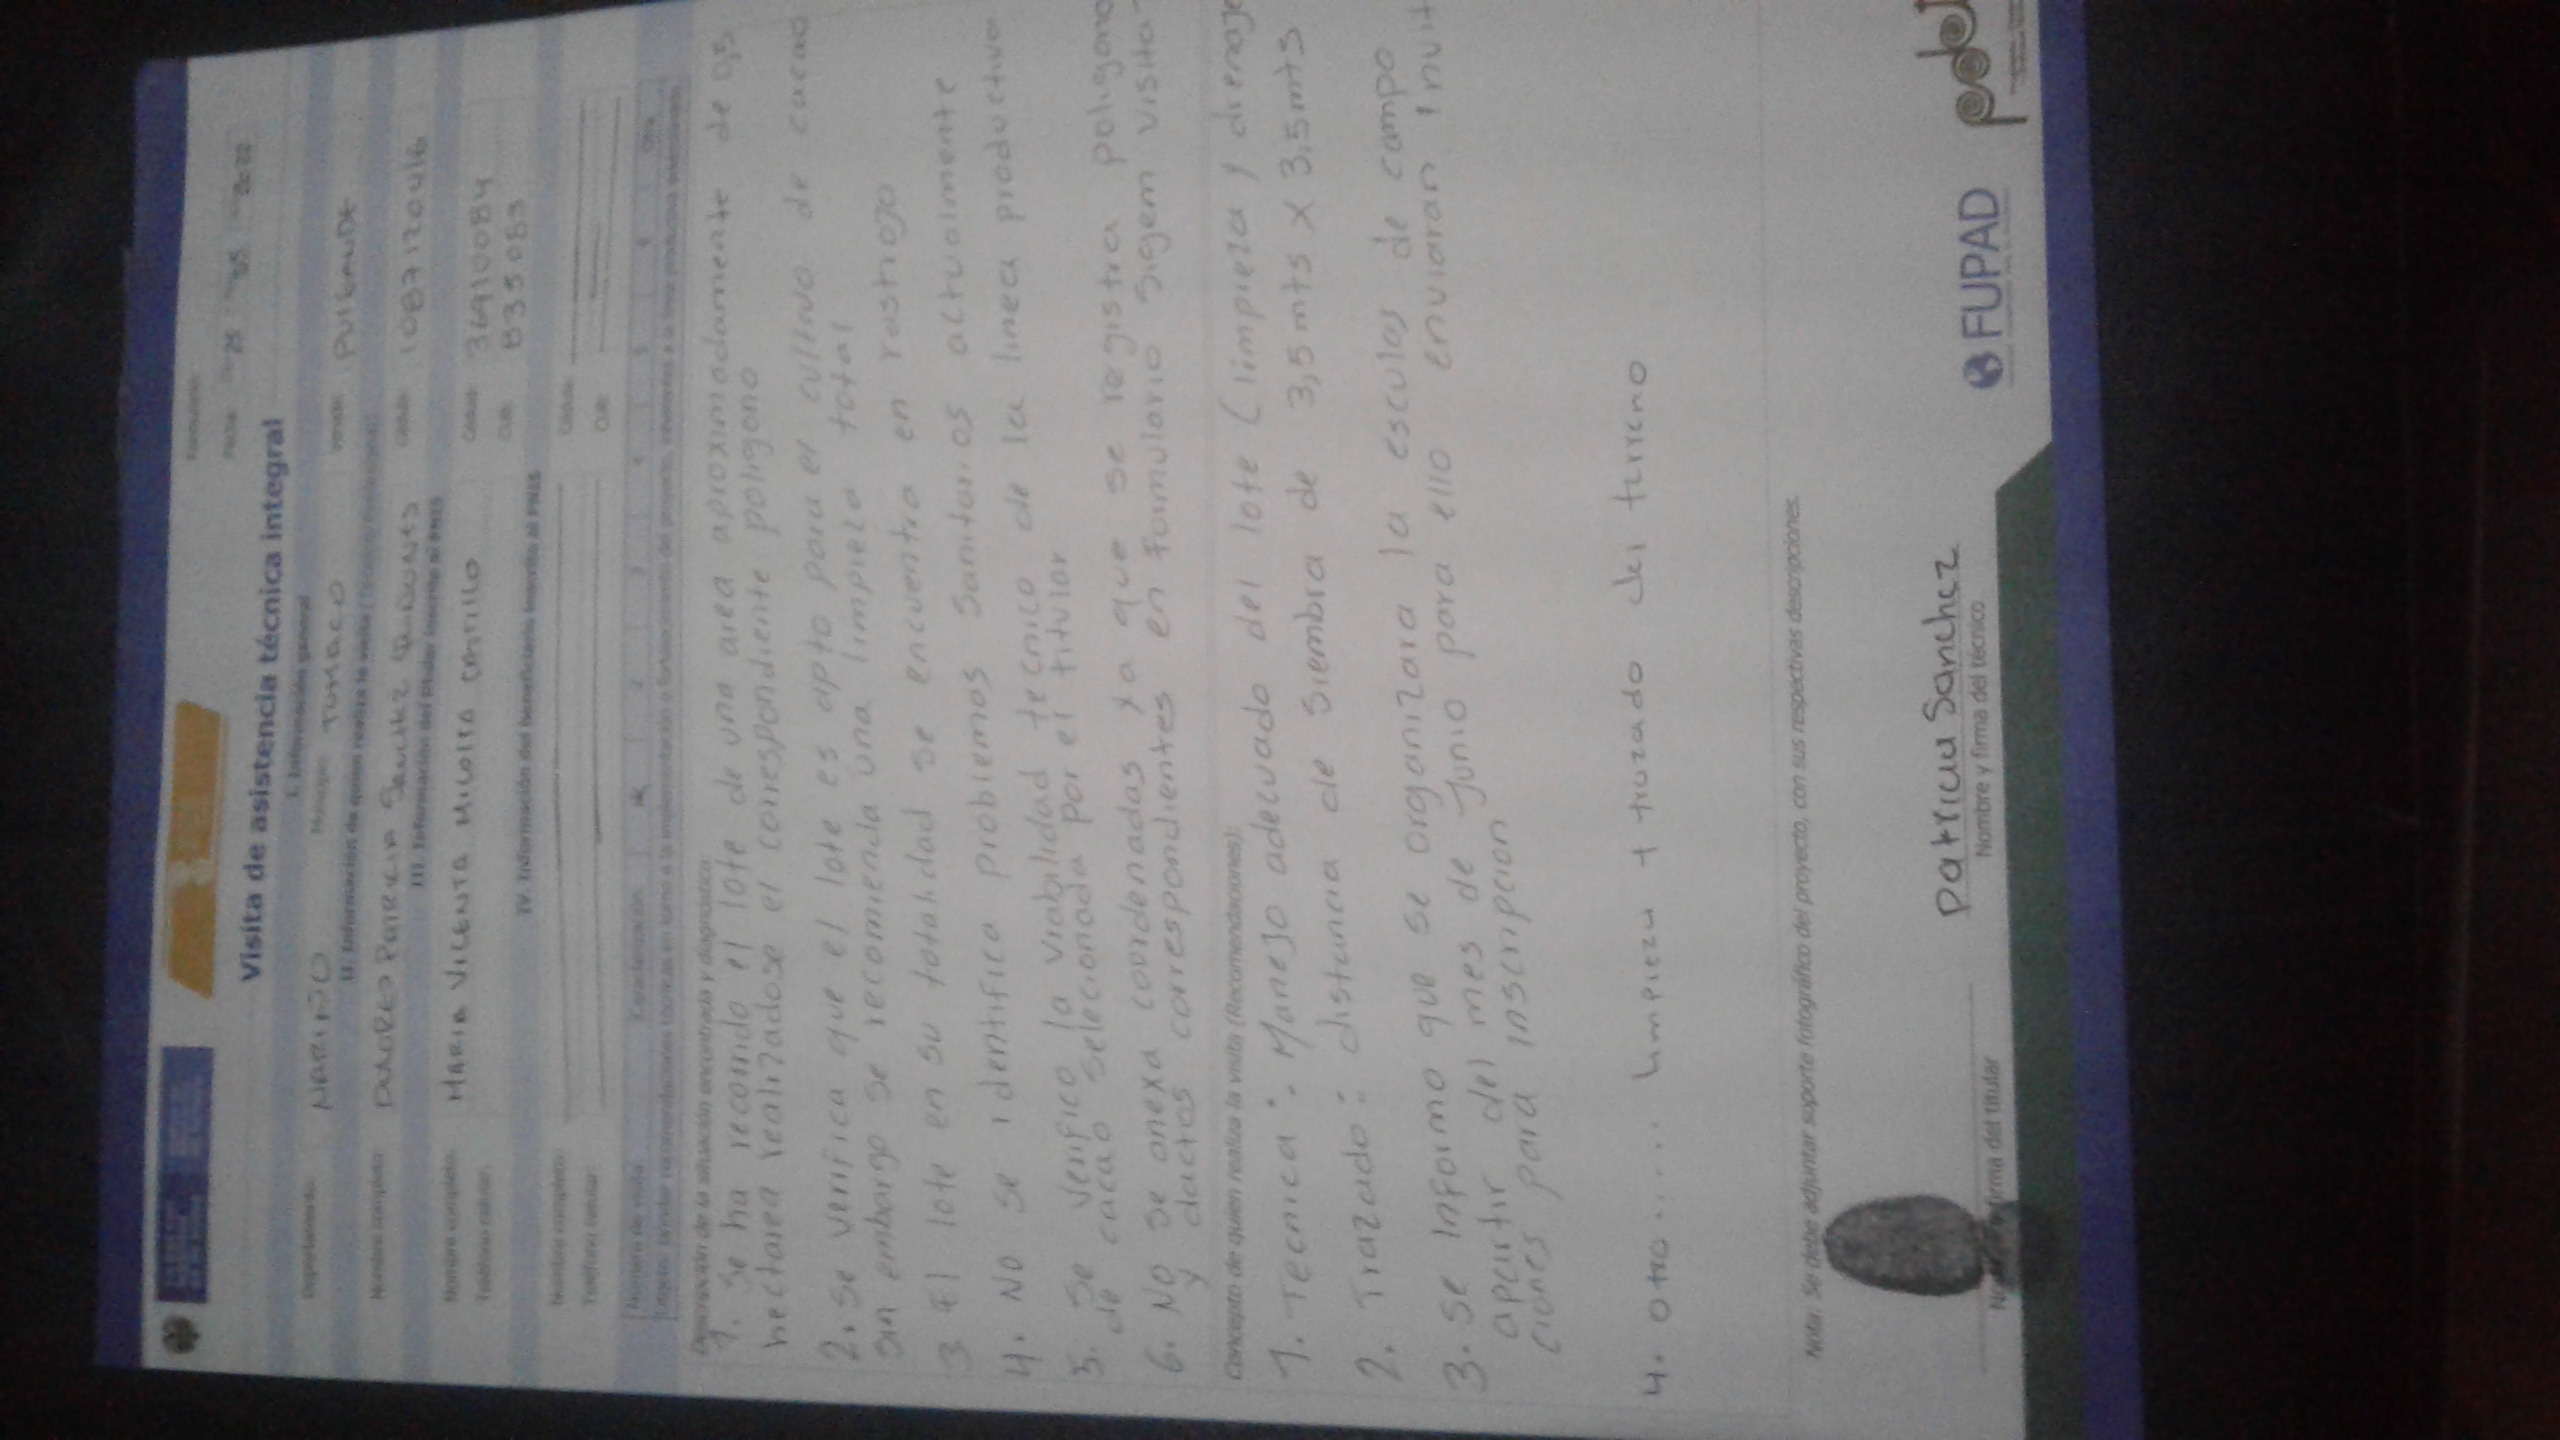 Formulario:
Fecha: 25 05 2022
Visita de asistencia técnica integral
I. Información general
Departamento: NARIÑO Municipio: TUMACO Vereda:
II. Información de quien realiza la visita
Nombre completo: Patricia Sanchez Cédula: 1087120416
III. Información del titular inscrito al PNIS
Nombre completo: MARIA VICENTA MILOITA CASTILLO Cédula: 36910084
Teléfono celular: CUB: 835083
IV. Información del beneficiario inscrito al PNIS
Nombre completo: Cédula:
Teléfono celular: CUB:
Número de visita Caracterización X 1 2 3 4 5 6 Otra
Descripción de la situación encontrada y diagnóstico:
1. Se ha recorrido el lote de una area aproximadamente de 0,5
hectarea realizadose el correspondiente poligono
2. se verifica que el lote es apto para el cultivo de cacao
sin embargo se recomienda una limpieza total
3 El lote en su totalidad se encuentra en rastrojo
4. No se identifica problemas sanitarios actualmente
5. Se verifico la viabilidad tecnico de la linea productiva
de cacao selecionada por el titular
6. No se anexa coordenadas ya que se registra poligono
y dactos correspondientes en formulario sigem visita-
Concepto de quien realiza la visita (Recomendaciones):
1. Tecnica: Manejo adecuado del lote (limpieza y drenaje
2. Trazado: distancia de siembra de 3,5 mts x 3,5mts
3. Se informo que se organizara la esculas de campo
apartir del mes de Junio para ello enviaran invit
ciones para inscripcion
4. otra..... limpieza + trazado del terreno
Nota: Se debe adjuntar soporte fotográfico del proyecto, con sus respectivas descripciones.
Patricia Sanchez
firma del titular Nombre y firma del técnico
FUPAD